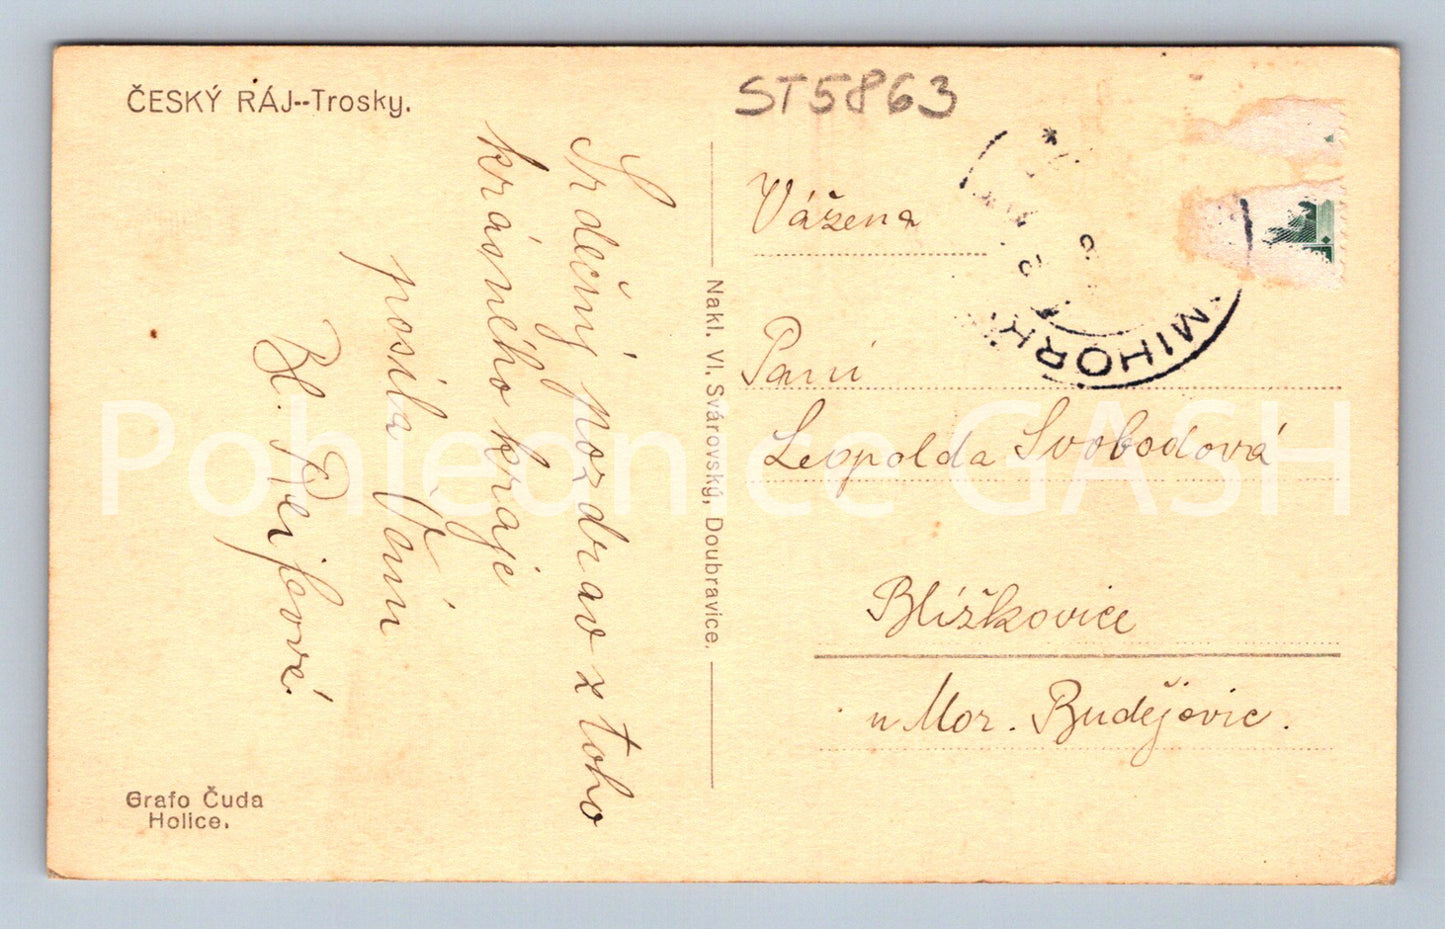 ČESKÝ RÁJ--Trosky.
ST5863
Srdečný pozdrav z toho
krásného kraje
posílá Vám
Bl. Pejfová
Nakl. Vl. Svárovský, Doubravice.
Vážena
Paní
Leopolda Svobodová
Blížkovice
u Mor. Budějovic.
MIHOR
Grafo Čuda
Holice.
Pohlednice GASH